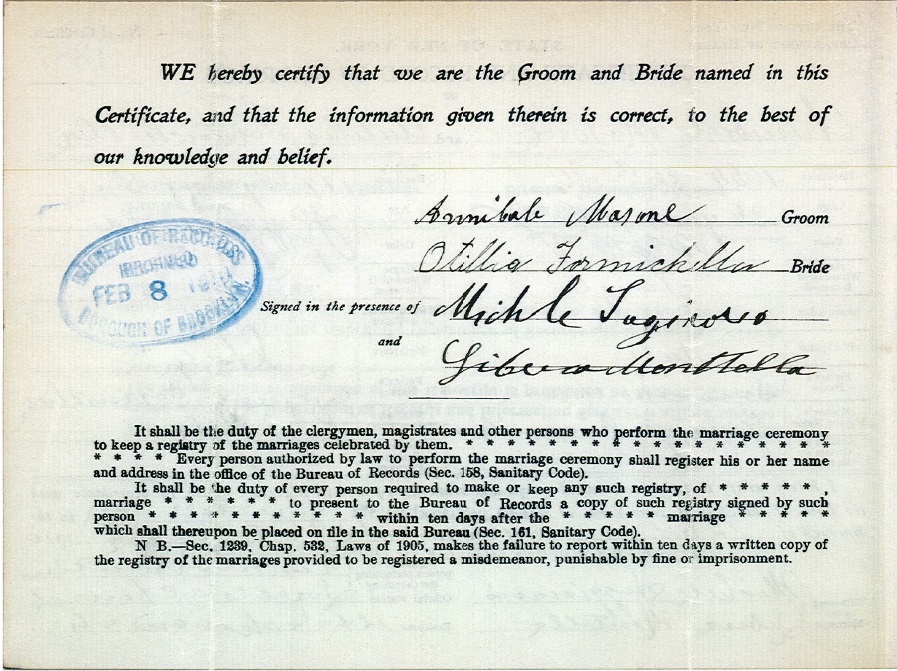 WE hereby certify that we are the Groom and Bride named in this
Certificate, and that the information given therein is correct, to the best of
our knowledge and belief.
Annibale Masone Groom
Otillia Formichella Bride
BUREAU OF RECORDS
FEB 8
BOROUGH OF BROOKLYN.
Signed in the presence of Michele
and
It shall be the duty of the clergymen, magistrates and other persons who perform the marriage ceremony
to keep a registry of the marriages celebrated by them. * * * * * * * * * * * * * * * * *
* * * * Every person authorized by law to perform the marriage ceremony shall register his or her name
and address in the office of the Bureau of Records (Sec. 158, Sanitary Code).
It shall be the duty of every person required to make or keep any such registry, of * * * * * ,
marriage * * * * * * * to present to the Bureau of Records a copy of such registry signed by such
person * * * * * * * * * * * within ten days after the * * * * * marriage * * * * *
which shall thereupon be placed on file in the said Bureau (Sec. 161, Sanitary Code).
N B.—Sec. 1239, Chap. 532, Laws of 1905, makes the failure to report within ten days a written copy of
the registry of the marriages provided to be registered a misdemeanor, punishable by fine or imprisonment.